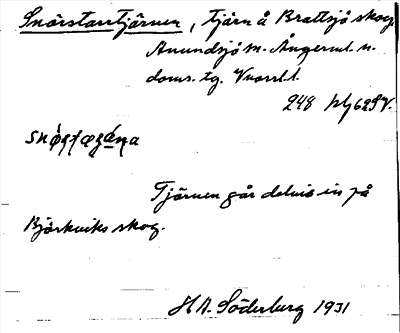 Snörstarrtjärnen, tjärn å Brattsjö skog
Anundsjö sn. Ångerml. n.
doms. tg. Vnorrl. l.
248
Tjärnen går delvis in på
Björkviks skog.
H A. Söderburg 1931